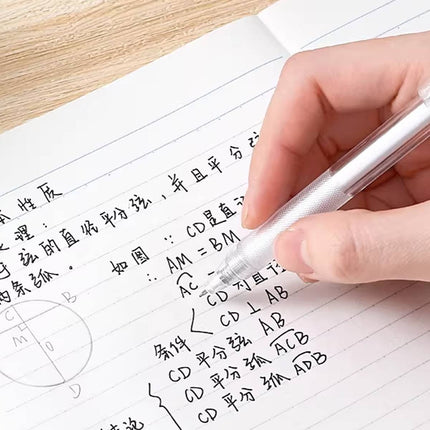 性质
理：
弦的直径平分弦，并且平分弦
条弧。
如图 ∵ CD是直
∴ AM = BM
AC
CD为直
条件
CD ⊥ AB
CD 平分弦 AB
CD 平分弧 ACB
CD 平分弧 ADB
C
B
M
O
D